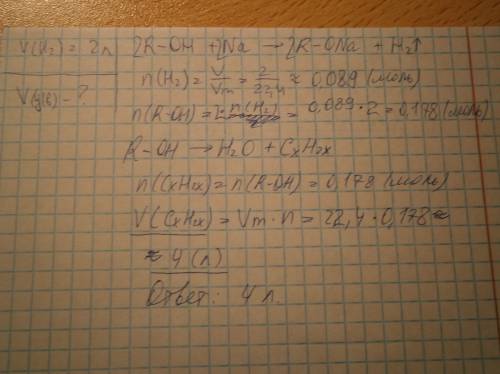 V(H₂) = 2л
V(ув) - ?
2R-OH + 2Na → 2R-ONa + H₂↑
n(H₂) = V/Vm = 2/22,4 ≈ 0,089 (моль)
n(R-OH) = 2·n(H₂) = 0,089·2 = 0,178 (моль)
R-OH → H₂O + CxH2x
n(CxH2x) = n(R-OH) = 0,178 (моль)
V(CxH2x) = Vm·n = 22,4·0,178 ≈
≈ 4 (л)
Ответ: 4 л.